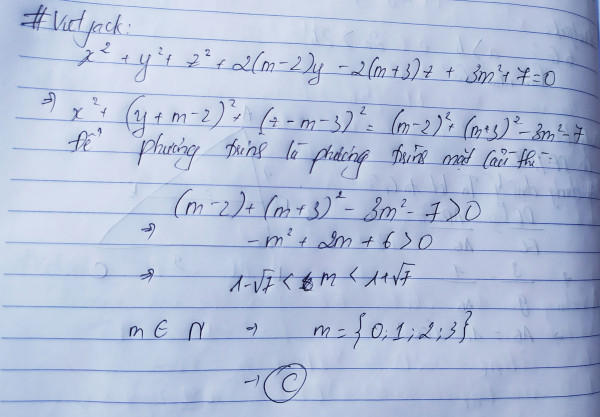 # Vietjack:
x² + y² + z² + 2(m-2)y - 2(m+3)z + 3m² + 7 = 0
=> x² + (y + m - 2)² + (z - m - 3)² = (m-2)² + (m+3)² - 3m² - 7
Để phương trình là phương trình mặt cầu thì:
(m-2) + (m+3)² - 3m² - 7 > 0
=> -m² + 2m + 6 > 0
=> 1-√7 < m < 1+√7
m ∈ N => m = {0; 1; 2; 3}
→ C